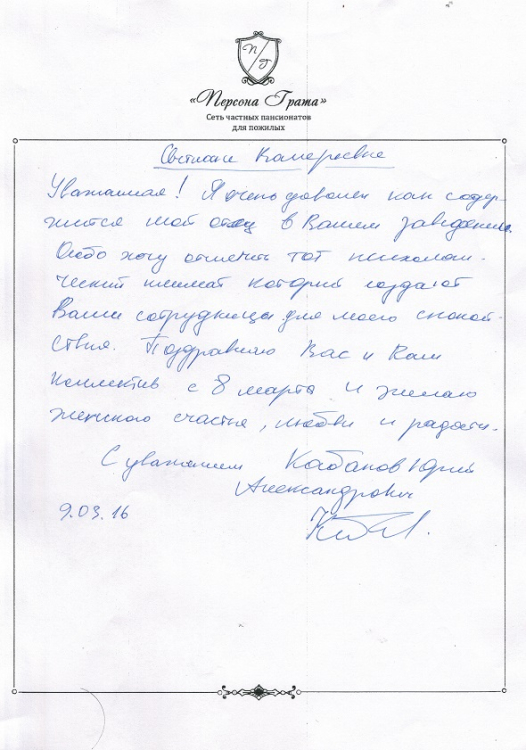 П/Г
«Персона Грата»
Сеть частных пансионатов
для пожилых
Светлане Валерьевне
Уважаемая! Я очень доволен как содер-
жится мой отец в Вашем заведении.
Особо хочу отметить тот психологи-
ческий климат который создают
Ваши сотрудницы для моего спокой-
ствия. Поздравляю Вас и Ваш
коллектив с 8 марта и желаю
женского счастья, любви и радости.
С уважением Кабанов Юрий
Александрович
9.03.16